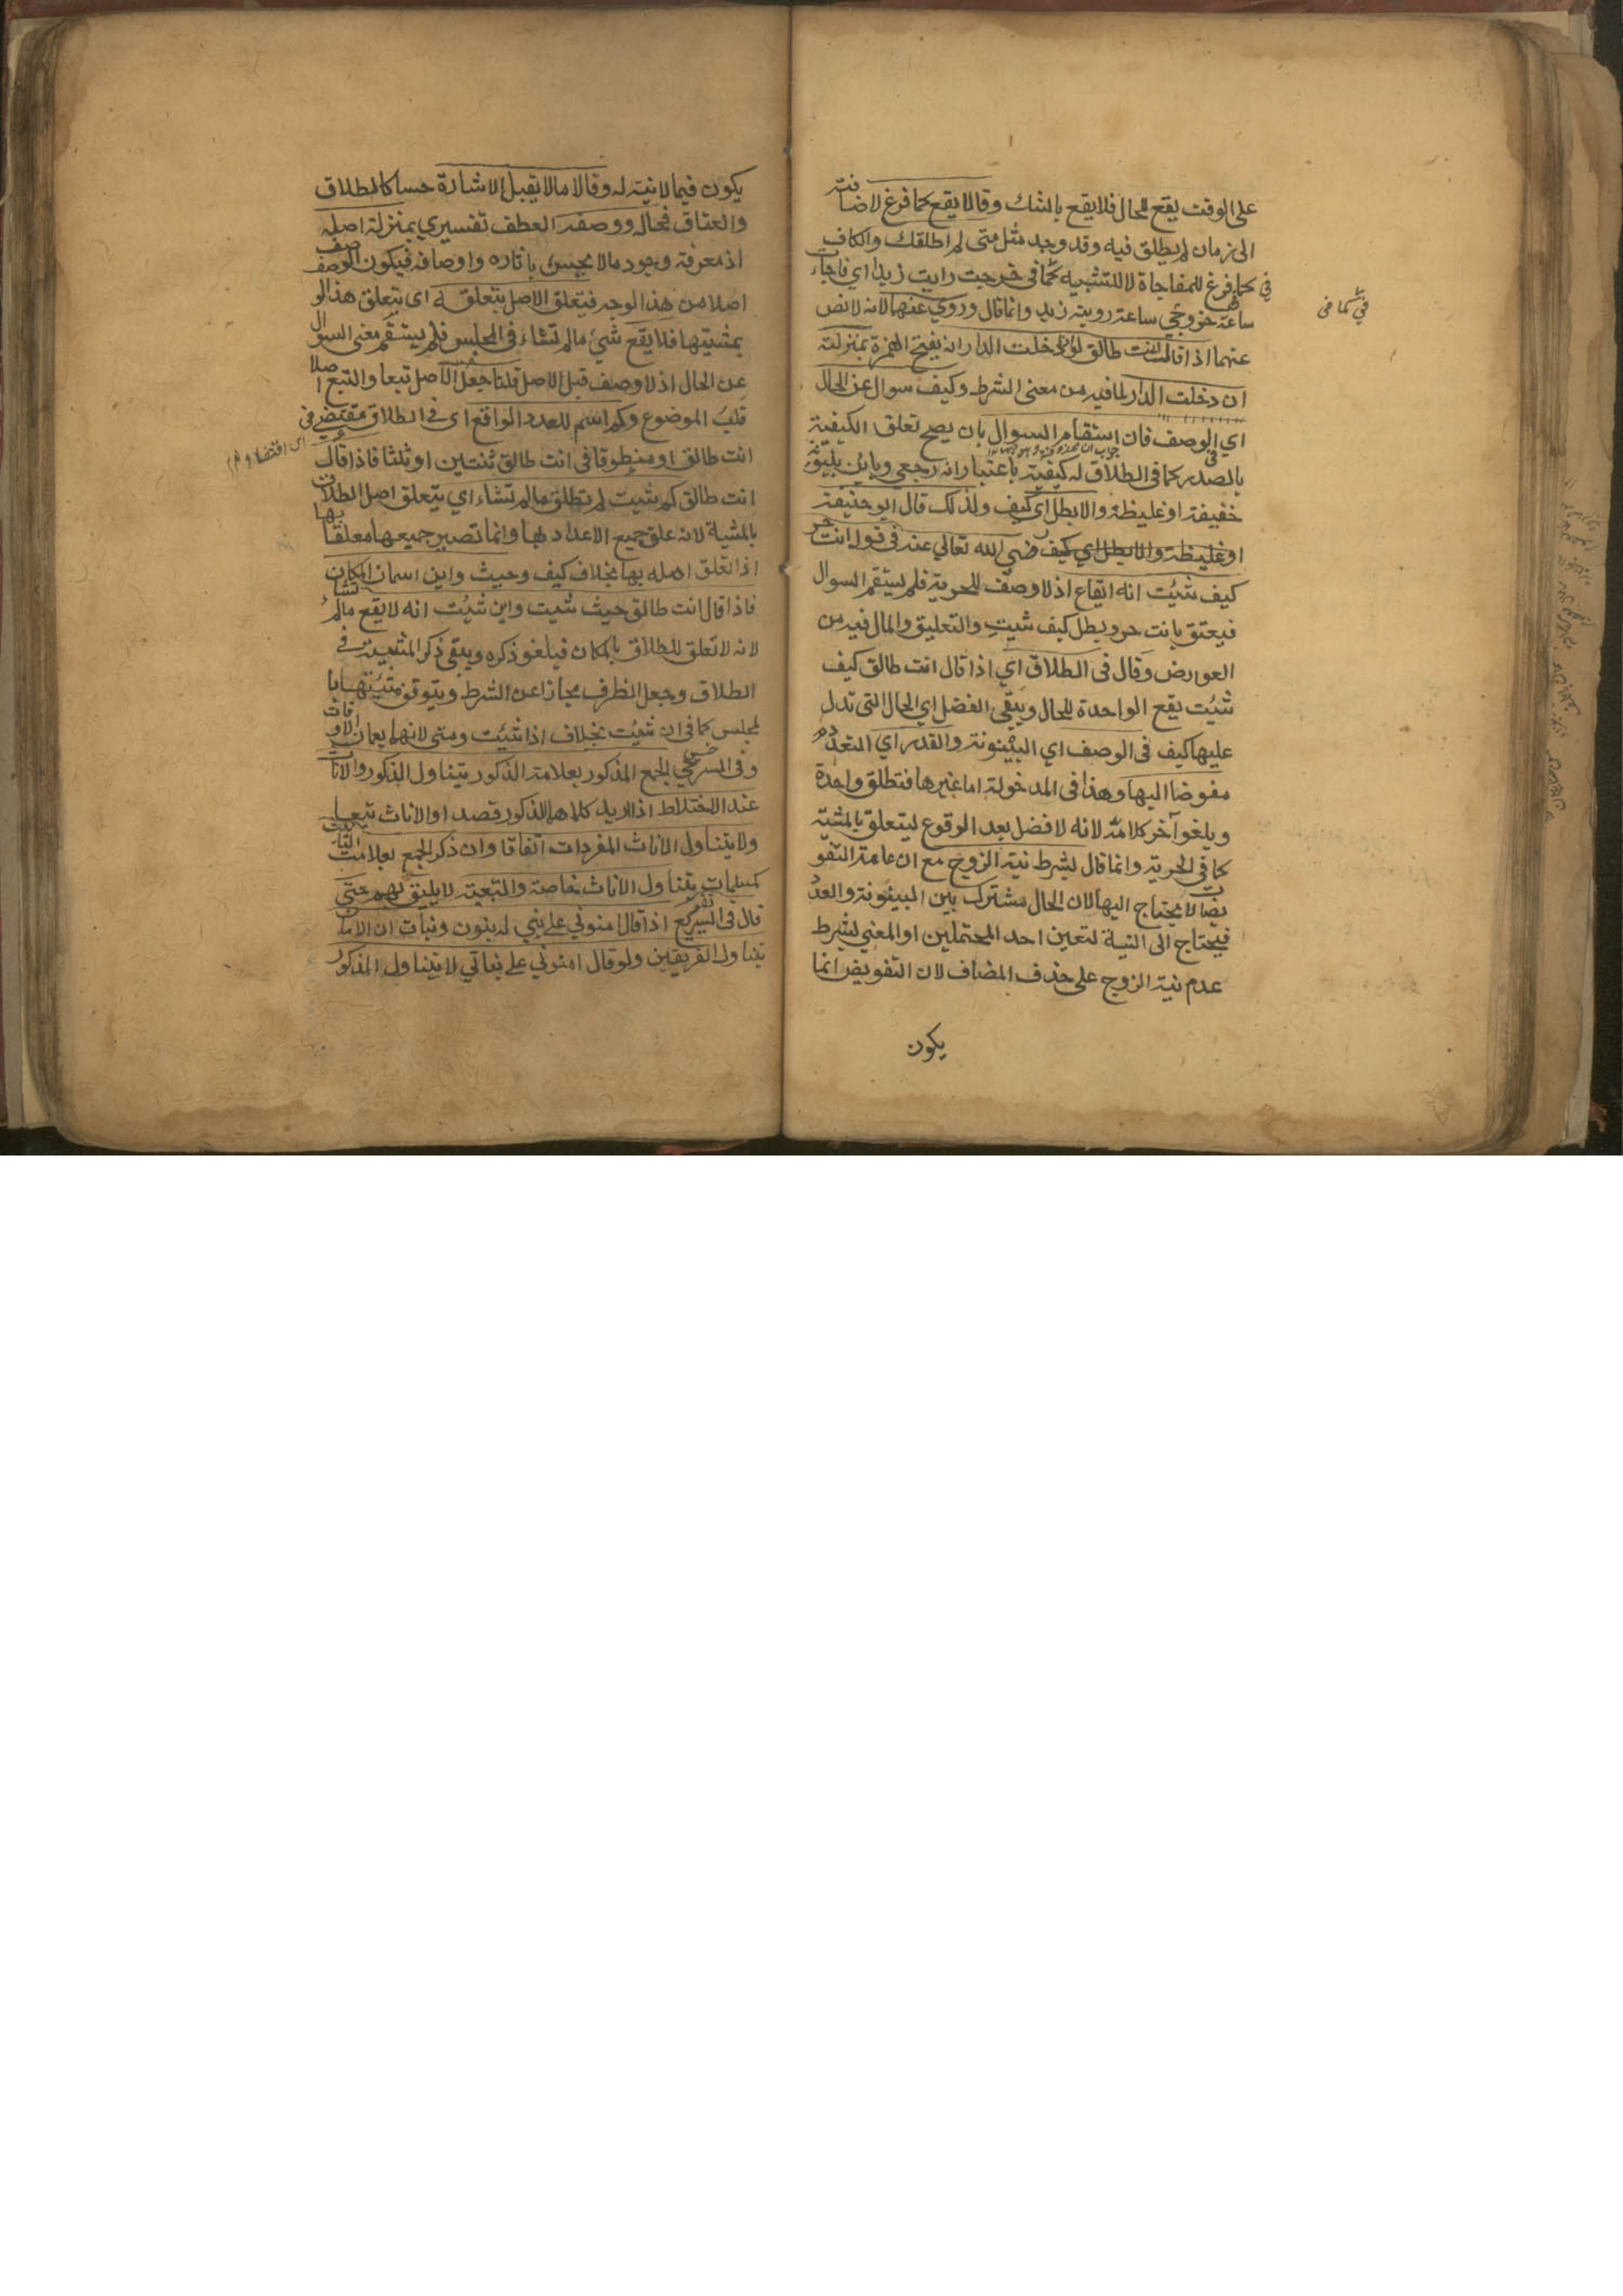 على الوقت يقع للحال فلا يقع بالشك وقالا يقع كما فرغ لاضافته
الى زمان لم يطلق فيه وقد وجد مثل متى لم اطلقك والكاف
في كما فرغ للمفاجاة لا للتشبيه كما في خرجت رايت زيدا اي فاجأت
ساعة خروجي ساعة روية زيد وانما قال وروي عنهما لانه لا نص
عنهما اذا قال انت طالق لو دخلت الدار انه بفتح الهمزة بمنزلة
ان دخلت الدار لما فيه من معنى الشرط وكيف سوال عن الحال
اي الوصف فان استقام السوال بان يصح تعلق الكيفية
بالصدر كما في الطلاق له كيفية باعتبار انه رجعي وباين بينونة
خفيفة او غليظة والا بطل اي كيف ولذلك قال ابو حنيفة
او غليظة والا بطل اي كيف رضي الله تعالى عنه في قوله انت حر
كيف شئت انه ايقاع اذ لا وصف للحرية فلم يستقم السوال
فيعتق بانت حر ويبطل كيف شيت والتعليق والمال فيه من
العوارض وقال في الطلاق اي اذا قال انت طالق كيف
شئت يقع الواحدة للحال ويبقى الفضل اي الحال التي تدل
عليها كيف في الوصف اي البينونة والقدر اي التعدد
مفوضا اليها وهذا في المدخولة اما غيرها فتطلق واحدة
ويلغو آخر كلامه لانه لا فضل بعد الوقوع ليتعلق بالمشية
كما في الحرية وانما قال بشرط نية الزوج مع ان عامة التفو
يضات لا يحتاج اليها لان الحال مشترك بين البينونة والعدد
فيحتاج الى النية لتعين احد المحتملين او المعنى بشرط
عدم نية الزوج على حذف المضاف لان التفويض انما
يكون
في كما في
يكون فيما لا نية له وقالا ما لا يقبل الاشارة حسا كالطلاق
والعتاق فحاله ووصفه العطف تفسيري بمنزلة اصله
اذ معرفة وجود ما لا يحس باثاره واوصافه فيكون الوصف
اصلا من هذا الوجه فيتعلق الاصل بتعلقه اي يتعلق هذا الو
بمشيتها فلا يقع شيء ما لم تشاء في المجلس فلم يستقم معنى السوال
عن الحال اذ لا وصف قبل الاصل قلنا جعل الاصل تبعا والتبع اصلا
قلب الموضوع وكم اسم للعدد الواقع اي في الطلاق مقتضى في
انت طالق او منطوقا في انت طالق ثنتين او ثلثا فاذا قال
انت طالق كم شيت لم تطلق ما لم تشاء اي يتعلق اصل الطلاق
بالمشية لانه علق جميع الاعداد بها وانما تصير جميعها معلقا بها
اذا تعلق اصله بها بخلاف كيف وحيث واين اسمان للمكان
فاذا قال انت طالق حيث شيت واين شئت انه لا يقع ما لم تشأ
لانه لا تعلق للطلاق بالمكان فيلغو ذكره ويبقى ذكر المشية في
الطلاق وجعل الظرف مجازا عن الشرط ويتوقف مشيتها با
لمجلس كما في ان شئت بخلاف اذا شئت ومتى لانهما يعمان الاوقات
وفي السرخسي الجمع المذكور بعلامة الذكور يتناول الذكور والاناث
عند الاختلاط اذا اريد كلاهما الذكور قصدا والاناث تبعا
ولا يتناول الاناث المفردات اتفاقا وان ذكر الجمع بعلامة التانيث
كمسلمات يتناول الاناث خاصة والتبعية لا يليق بهم حتى
قال في السير اذا قال امنوني على بني له بنون وبنات ان الامان
يتناول الفريقين ولو قال امنوني على بناتي لا يتناول المذكور